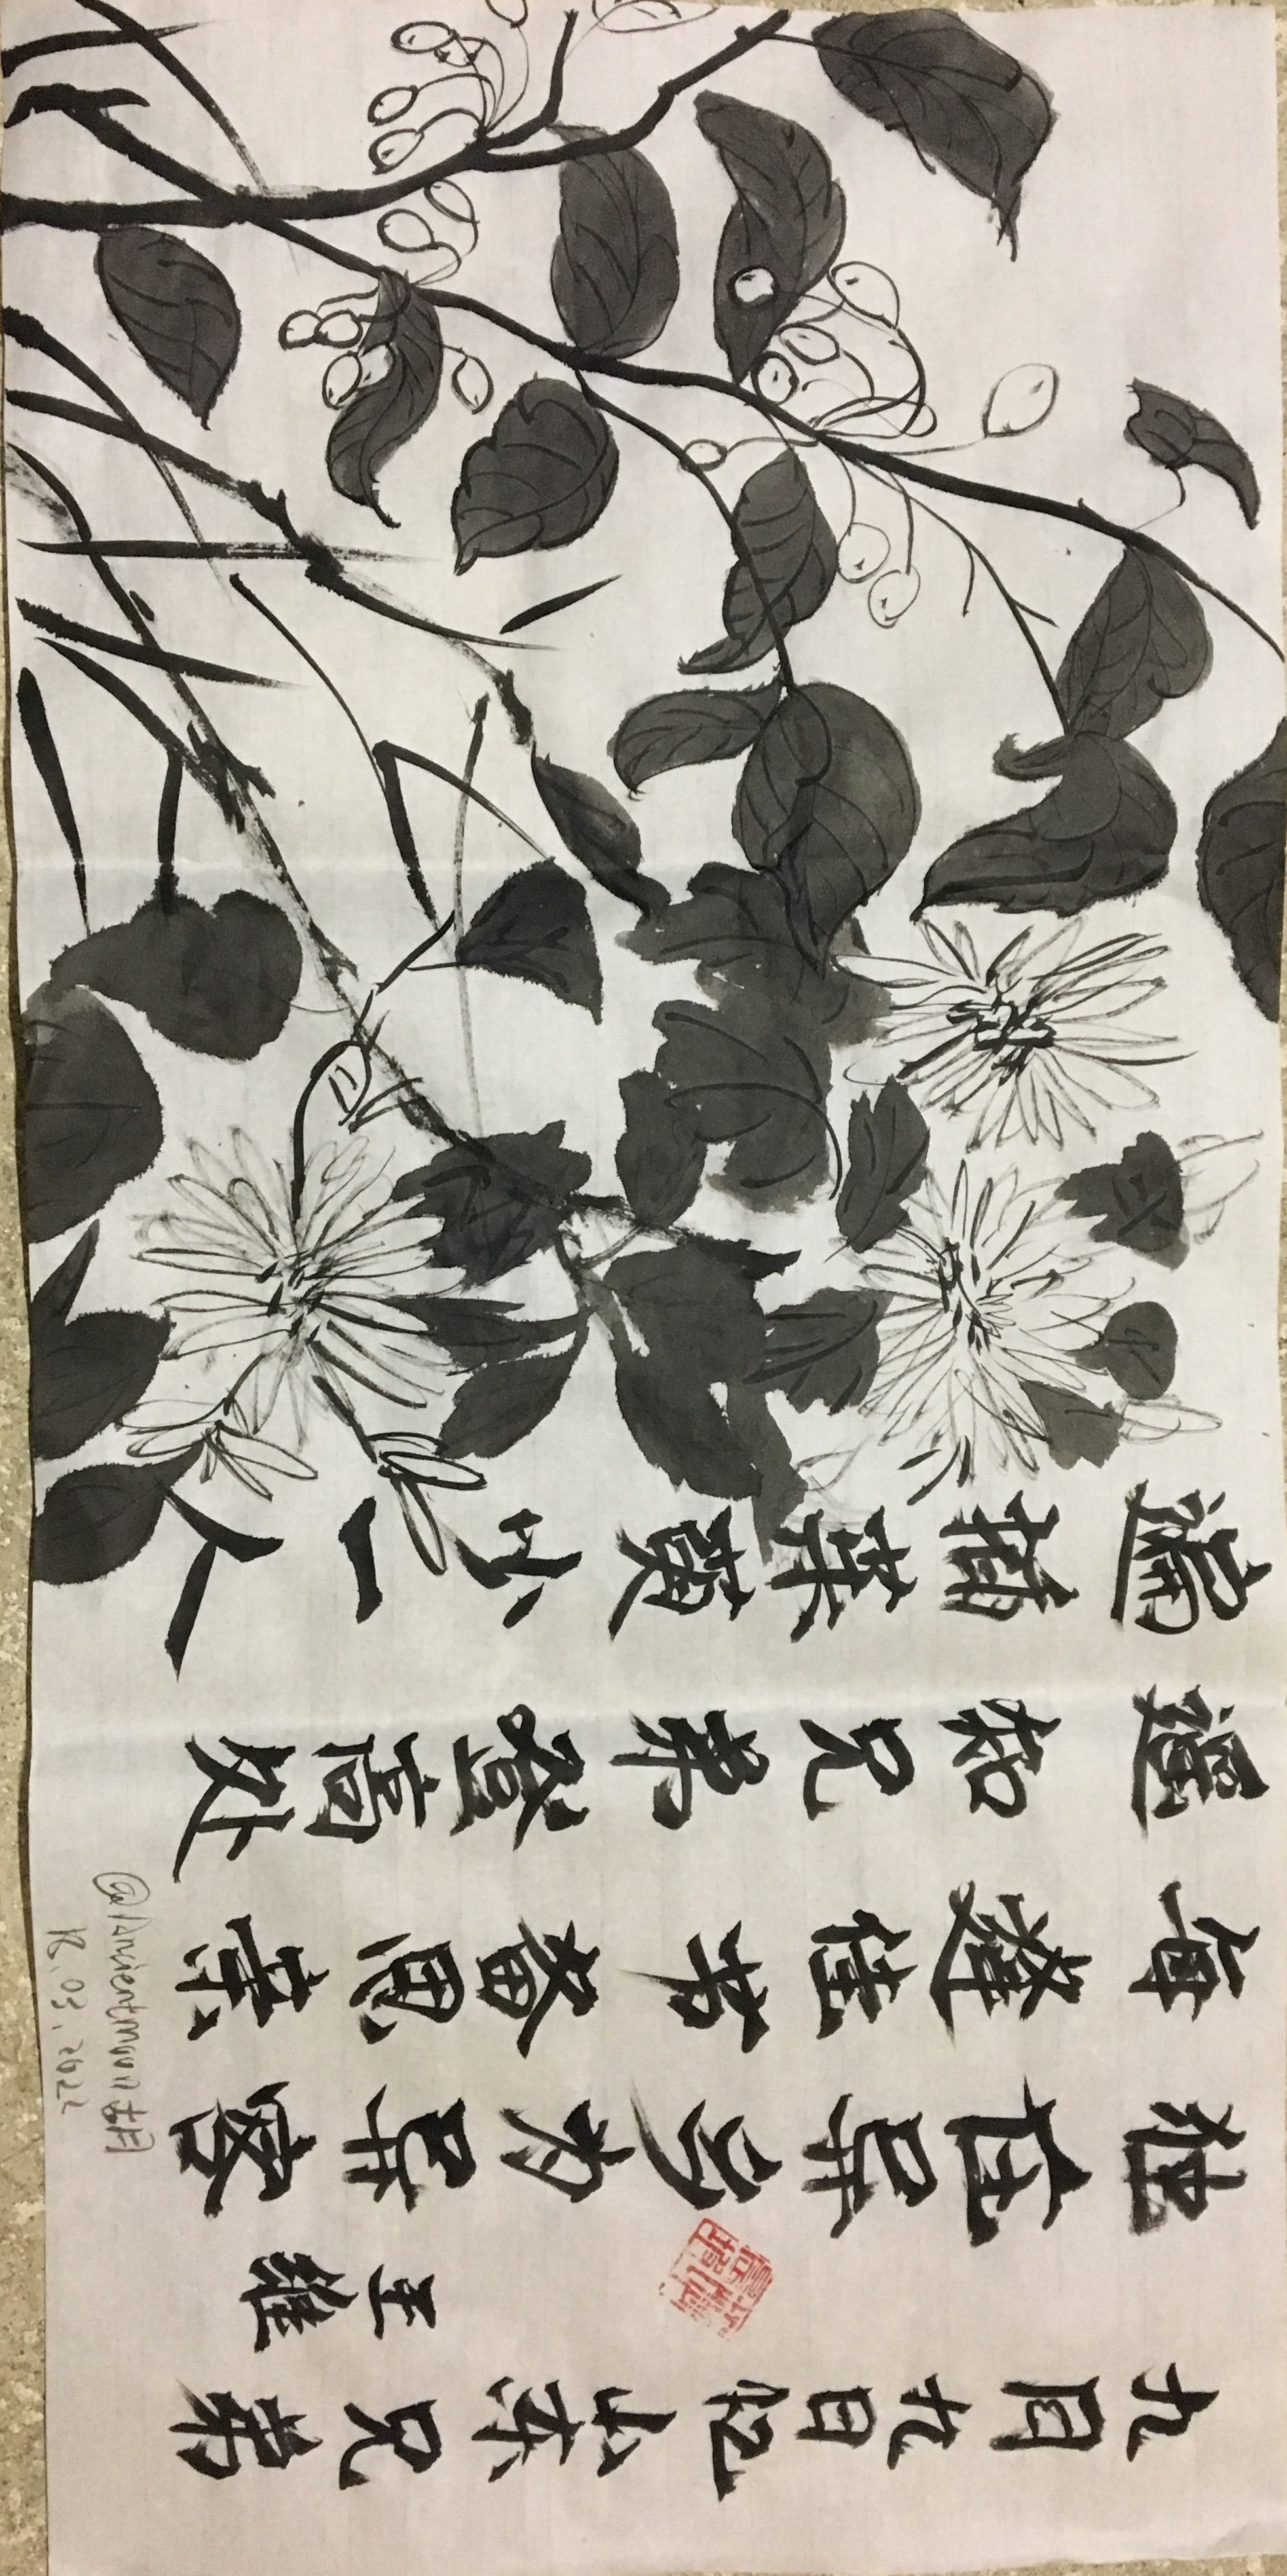 九月九日忆山东兄弟
王维
独在异乡为异客
每逢佳节备思亲
遥知兄弟登高处
遍插茱萸少一人
@Ancientmoon胡
18.03.2022